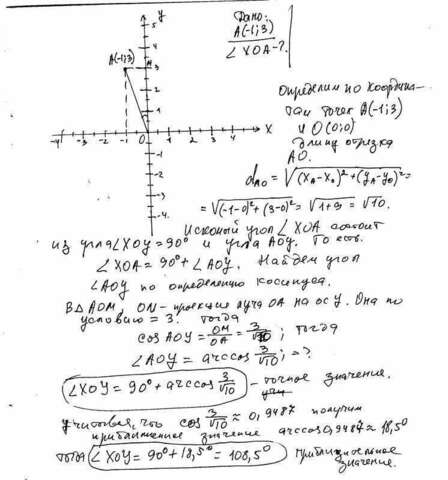 y
5
4
A(-1;3)
3
2
1
-4 -3 -2 -1 0 1 2 3 4 x
-1
-2
-3
-4
Дано:
A(-1;3)
∠XOA-?
Определим по координа-
там точек A(-1;3)
и O(0;0)
длину отрезка
AO.
d_AO = √((x_A-x_o)²+(y_A-y_o)²) =
= √((-1-0)²+(3-0)²) = √(1+9) = √10.
Искомый угол ∠XOA состоит
из угла ∠XOY=90° и угла AOY. То есть
∠XOA=90°+∠AOY. Найдем угол
∠AOY по определению косинуса.
В △AOM, OM - проекция луча OA на ось y. Она по
условию = 3. Тогда
cosAOY = OM/OA = 3/√10; тогда
∠AOY = arccos 3/√10; =>
∠XOY = 90° + arccos 3/√10 - точное значение.
учитывая, что cos 3/√10 ≈ 0,9487 получим
приближенное значение arccos 0,9487 ≈ 18,5°
тогда ∠XOY = 90°+18,5° = 108,5° приблизительное
значение.